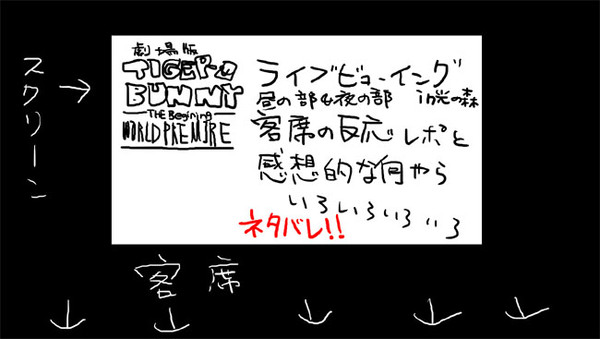 スクリーン
劇場版
TIGER&
BUNNY
The Beginning
WORLD PREMIRE
ライブビューイング
昼の部&夜の部 in光の森
客席の反応レポと
感想的な何やら
いろいろいろいろ
ネタバレ!!
客席